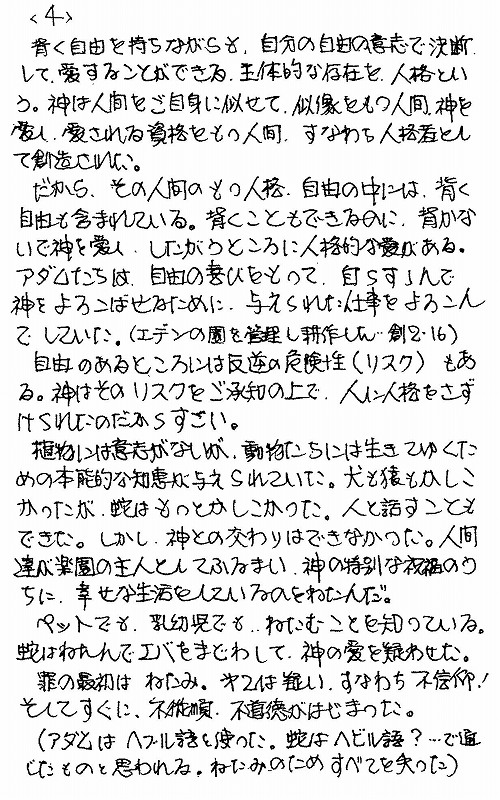 <4>
背く自由を持ちながらも、自分の自由の意志で決断
して、愛することができる、主体的な存在を、人格とい
う。神は人間をご自身に似せて、似像をもつ人間、神を
愛し、愛される資格をもつ人間、すなわち人格者とし
て創造された。
だから、その人間のもつ人格、自由の中には、背く
自由も含まれている。背くこともできるのに、背かな
いで神を愛し、したがうところに人格的な愛がある。
アダムたちは、自由の喜びをもって、自らすすんで
神をよろこばせるために、与えられた仕事をよろこん
でしていた。(エデンの園を管理し耕作した…創2・16)
自由のあるところには反逆の危険性(リスク)もあ
る。神はそのリスクをご承知の上で、人に人格をさず
けられたのだからすごい。
植物には意志がないが、動物たちには生きてゆくた
めの本能的な知恵が与えられていた。犬も猿もかしこ
かったが、蛇はもっとかしこかった。人と話すことも
できた。しかし、神との交わりはできなかった。人間
達が楽園の主人としてふるまい、神の特別な祝福のう
ちに、幸せな生活をしているのをねたんだ。
ペットでも、乳幼児でも…ねたむことを知っている。
蛇はねたんでエバをまどわして、神の愛を疑わせた。
罪の最初は ねたみ。オ2は疑い、すなわち 不信仰!
そしてすぐに、不従順、不道徳がはじまった。
(アダムは ヘブル語を使った。蛇はヘビル語?…で通
じたものと思われる。ねたみのため すべてを失った)